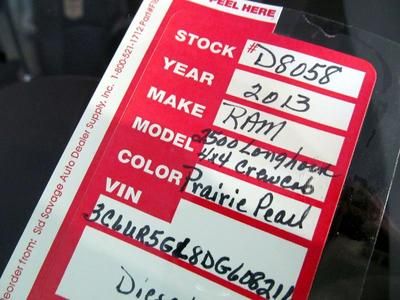 PEEL HERE
STOCK #D8058
YEAR 2013
MAKE RAM
MODEL 2500 Longhorn
4x4 Crewcab
COLOR Prairie Pearl
VIN
3C6UR5GL8DG608211
Reorder from: Sid Savage Auto Dealer Supply, Inc. 1-800-521-1712